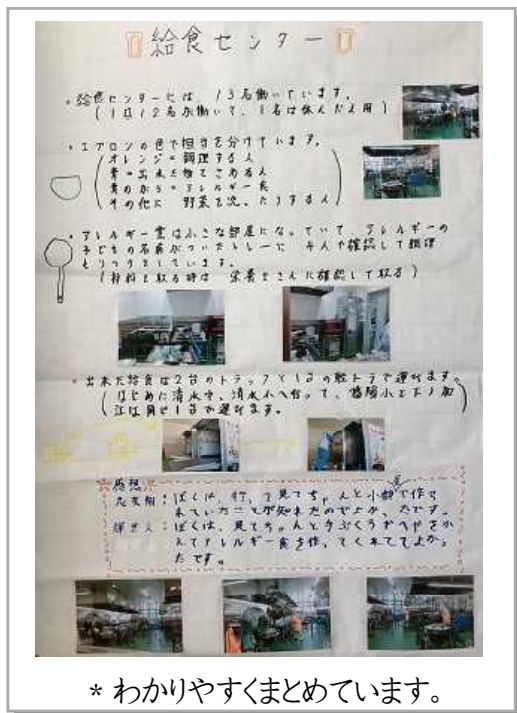 給食センター
・給食センターには、13名働いています。
(1日12名が働いて、1名は休んだ人用)
・エプロンの色で担当を分けています。
オレンジ=調理する人
青=出来た物をさめる人
青のがら=アレルギー食
その他に 野菜を洗ったりする人
・アレルギー室は小さな部屋になっていて アレルギーの
子どもの名前がついたトレーに 4人で確認して調理
とりつけをしています。
(材料を取る時は 栄養士さんに確認して取る)
・出来た給食は2台のトラックと1台の軽トラで運びます。
はじめに清水中、清水小へ行って、
は同じ1台で運びます。
感想
:ぼくは、行って見てちゃんと小部屋で作ら
れていたことが知れたのでよかったです。
:ぼくは、見てちゃんと
アレルギー食を作ってくれててよかっ
たです。
* わかりやすくまとめています。